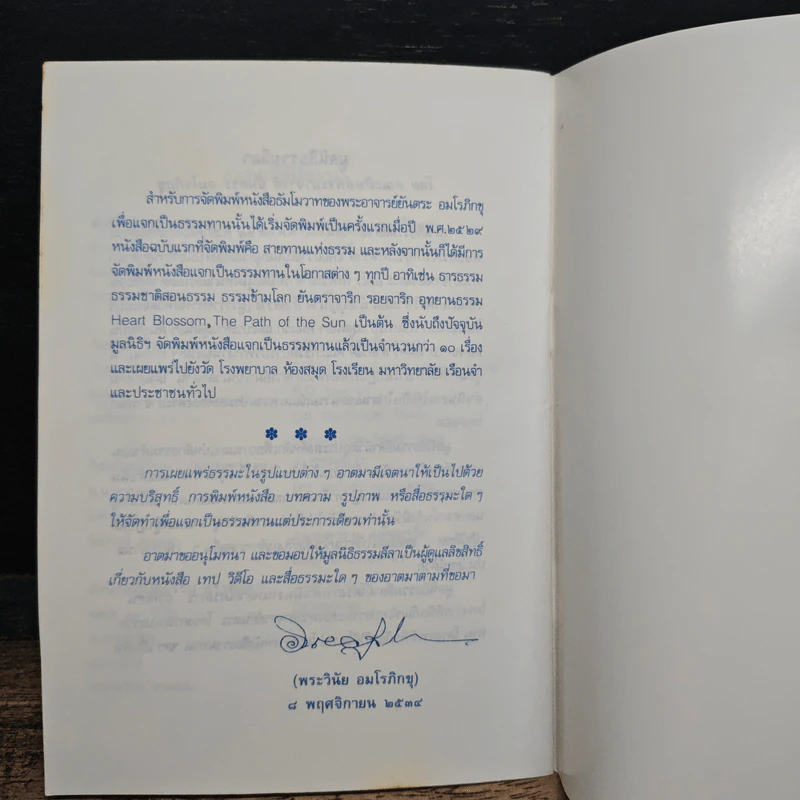 สำหรับการจัดพิมพ์หนังสือธัมโมวาทของพระอาจารย์ยันตระ อมโรภิกขุ
เพื่อแจกเป็นธรรมทานนั้นได้เริ่มจัดพิมพ์เป็นครั้งแรกเมื่อปี พ.ศ.๒๕๒๙
หนังสือฉบับแรกที่จัดพิมพ์คือ สายทานแห่งธรรม และหลังจากนั้นก็ได้มีการ
จัดพิมพ์หนังสือแจกเป็นธรรมทานในโอกาสต่าง ๆ ทุกปี อาทิเช่น ธารธรรม
ธรรมชาติสอนธรรม ธรรมข้ามโลก ยันตราจาริก รอยจาริก อุทยานธรรม
Heart Blossom, The Path of the Sun เป็นต้น ซึ่งนับถึงปัจจุบัน
มูลนิธิฯ จัดพิมพ์หนังสือแจกเป็นธรรมทานแล้วเป็นจำนวนกว่า ๑๐ เรื่อง
และเผยแพร่ไปยังวัด โรงพยาบาล ห้องสมุด โรงเรียน มหาวิทยาลัย เรือนจำ
และประชาชนทั่วไป
✽ ✽ ✽
การเผยแพร่ธรรมะในรูปแบบต่าง ๆ อาตมามีเจตนาให้เป็นไปด้วย
ความบริสุทธิ์ การพิมพ์หนังสือ บทความ รูปภาพ หรือสื่อธรรมะใด ๆ
ให้จัดทำเพื่อแจกเป็นธรรมทานแต่ประการเดียวเท่านั้น
อาตมาขออนุโมทนา และขอมอบให้มูลนิธิธรรมลีลาเป็นผู้ดูแลลิขสิทธิ์
เกี่ยวกับหนังสือ เทป วิดีโอ และสื่อธรรมะใด ๆ ของอาตมาตามที่ขอมา
(พระวินัย อมโรภิกขุ)
๘ พฤศจิกายน ๒๕๓๔